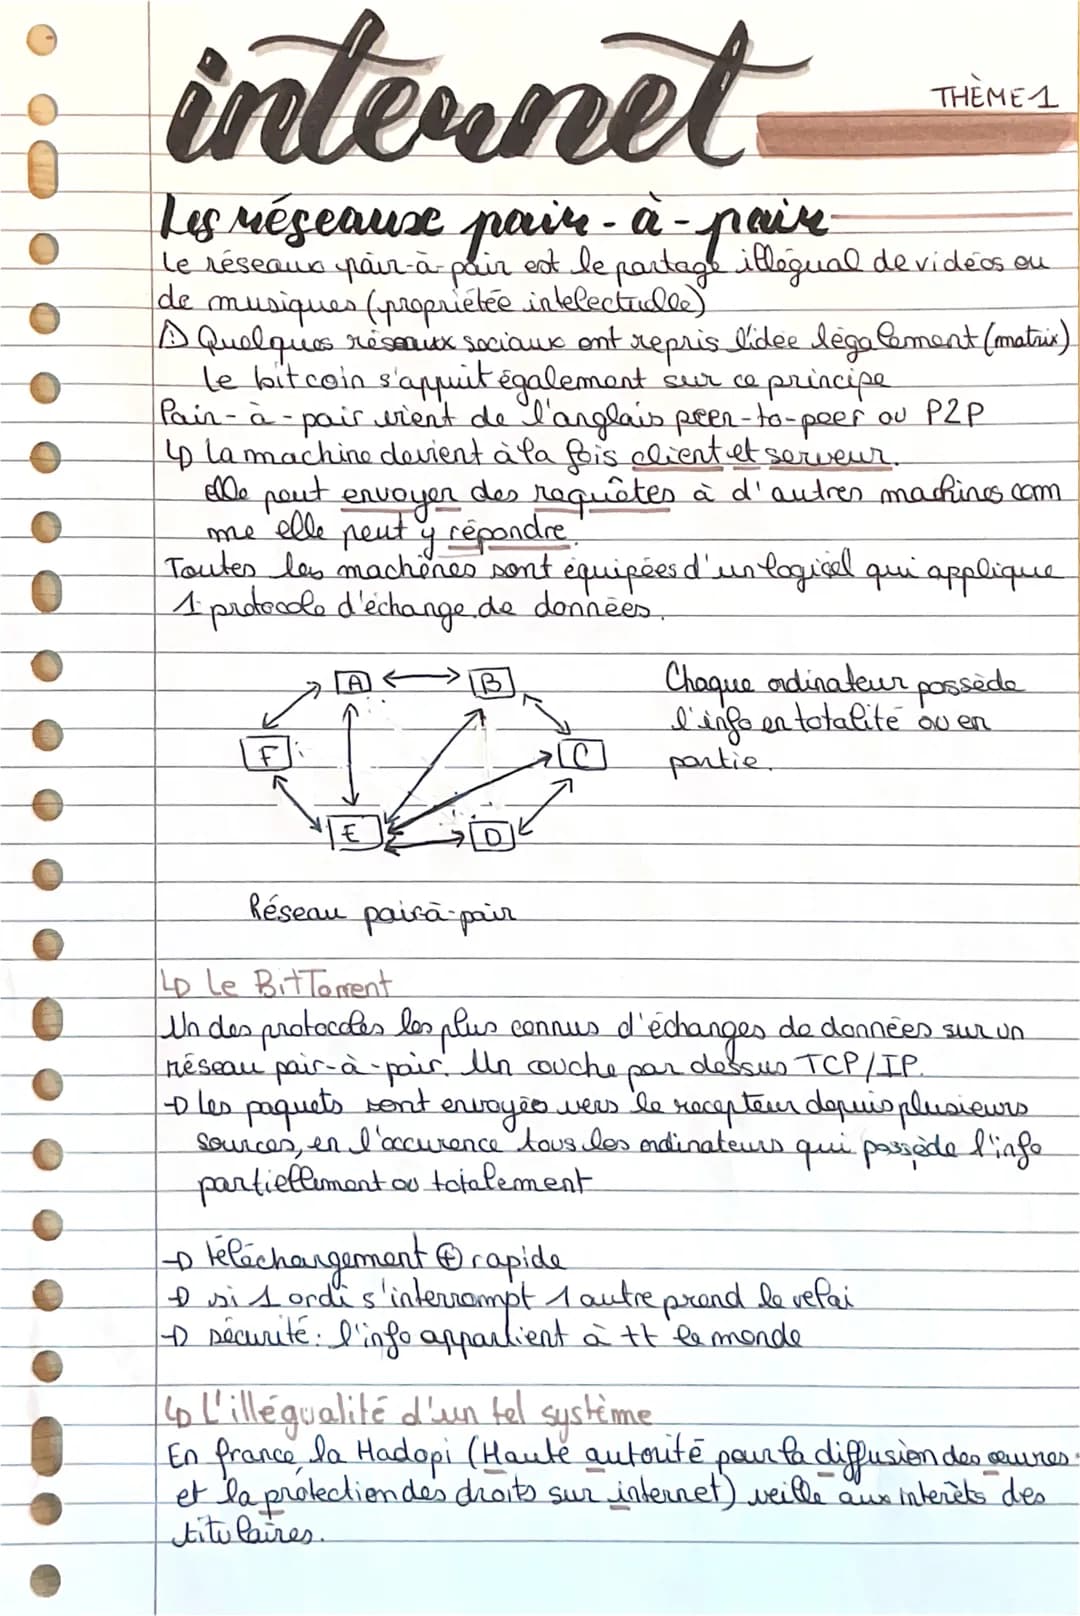 internet
THÈME 1
Les réseaux pair-à-pair
Le réseaux pair-à-pair est le partage illégual de vidéos ou
de musiques (propriétée intelectuelle)
⚠ Quelques réseaux sociaux ont repris l'idée légalement (matrix)
Le bitcoin s'appuit également sur ce principe
Pair-à-pair vient de l'anglais peer-to-peer ou P2P
↳ la machine devient à la fois client et serveur.
elle peut envoyer des requêtes à d'autres machines com
me elle peut y répondre.
Toutes les machines sont équipées d'un logiciel qui applique
1 protocole d'échange de données.
A B
F C
E D
Chaque ordinateur possède
l'info en totalité ou en
partie.
Réseau pair à-pair
↳ Le BitTorrent
Un des protocoles les plus connus d'échanges de données sur un
réseau pair-à-pair. Un couche par dessus TCP/IP.
→ les paquets sont envoyés vers le recepteur depuis plusieurs
sources, en l'accurence tous les ordinateurs qui possède l'info
partiellement ou totalement
→ téléchargement ⊕ rapide
→ si 1 ordi s'interrompt 1 autre prend le relai
→ sécurité: l'info appartient à tt le monde
↳ L'illégualité d'un tel système
En france, la Hadopi (Haute autorité pour la diffusion des œuvres
et la protection des droits sur internet) veille aux interèts des
titulaires.